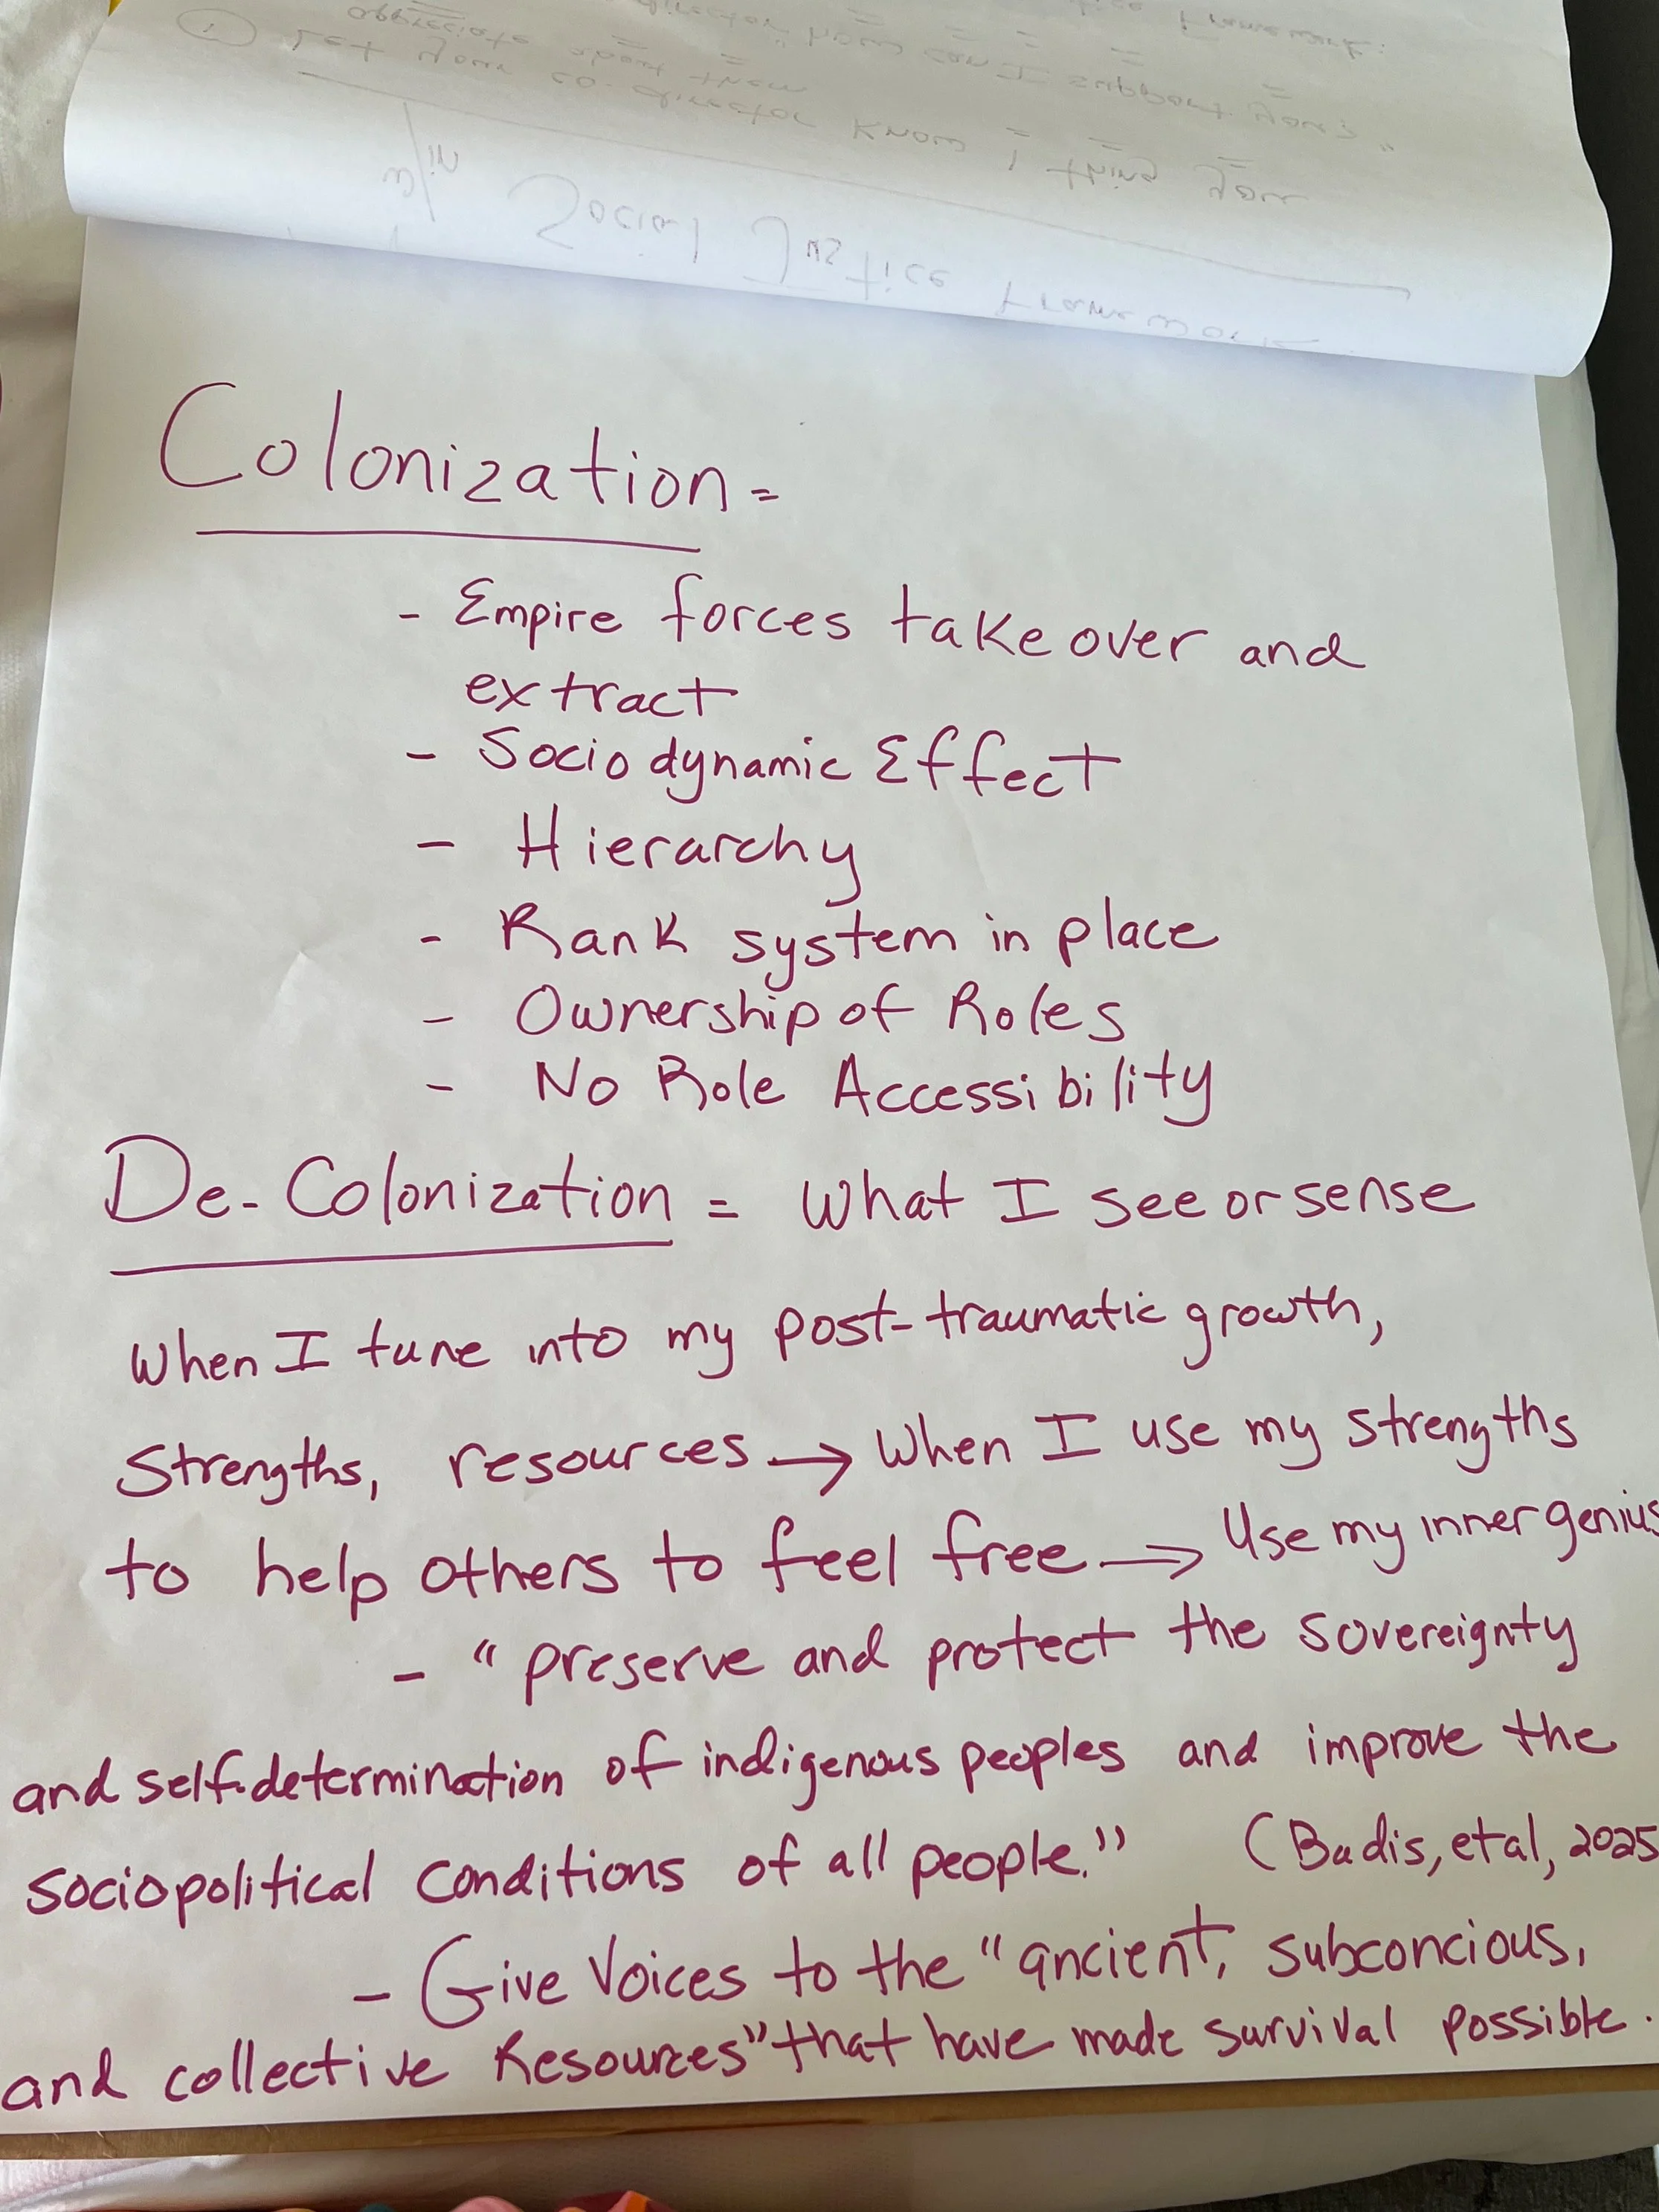 Framework:
director "how can I support you?"
appreciate about them
① Let your co-director know 1 thing you
w/in Social Justice Framework
Colonization =
- Empire forces take over and
extract
- Sociodynamic Effect
- Hierarchy
- Rank system in place
- Ownership of Roles
- No Role Accessibility
De-Colonization = What I see or sense
when I tune into my post-traumatic growth,
Strengths, resources → When I use my strengths
to help others to feel free → Use my inner genius
- "preserve and protect the sovereignty
and self-determination of indigenous peoples and improve the
sociopolitical conditions of all people." (Badis, et al, 2025
- Give Voices to the "ancient, subconcious,
and collective Resources" that have made survival possible.